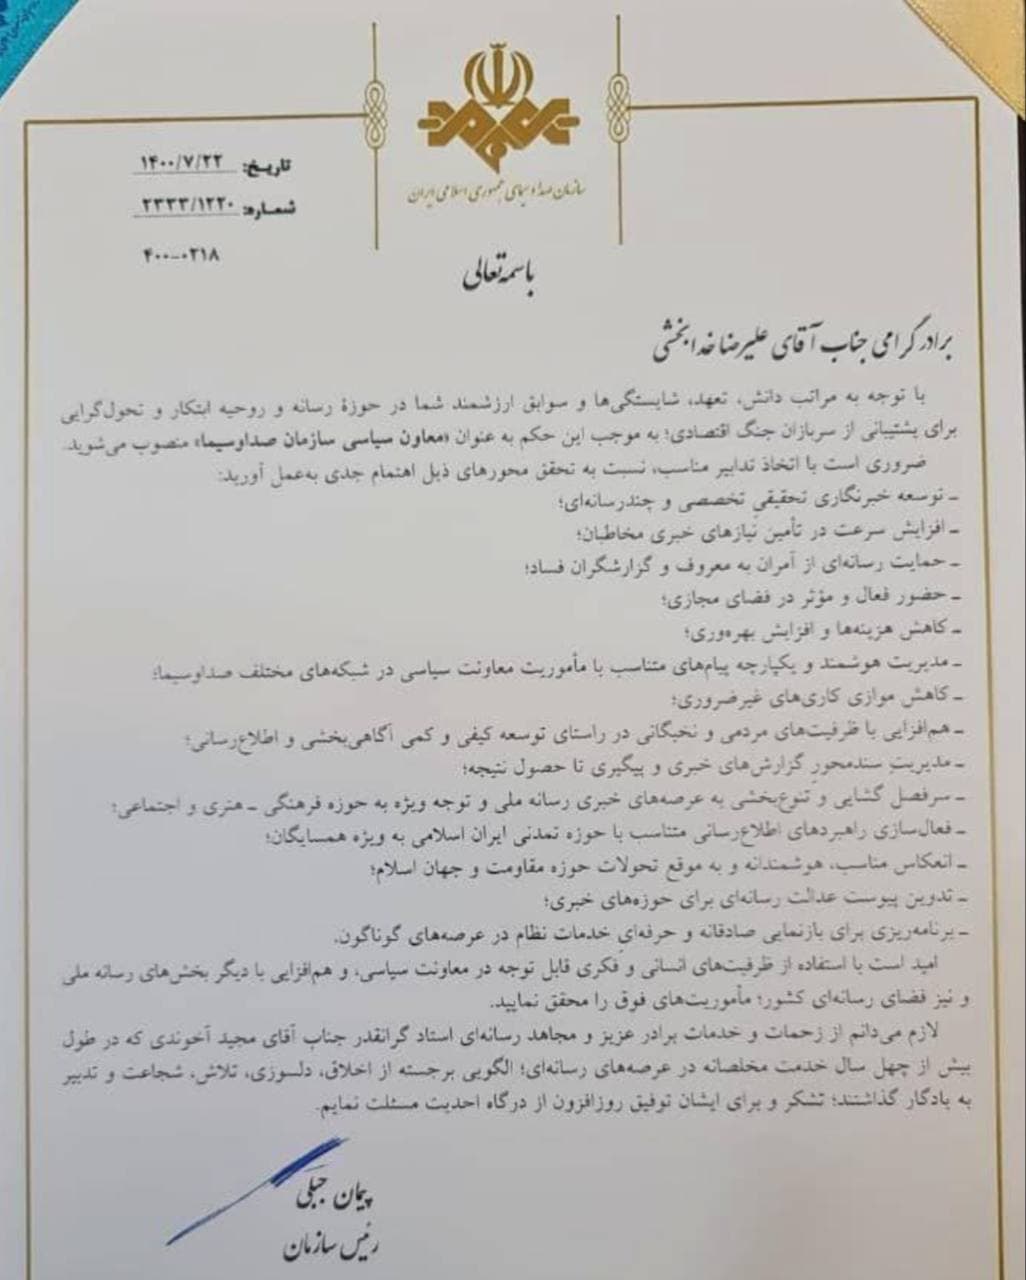 سازمان صدا و سیمای جمهوری اسلامی ایران
تاریخ: ۱۴۰۰/۷/۲۲
شماره: ۲۳۳۳/۱۲۲۰
۴۰۰-۰۲۱۸
باسمه‌تعالی
برادر گرامی جناب آقای علیرضا خدابخشی
با توجه به مراتب دانش، تعهد، شایستگی‌ها و سوابق ارزشمند شما در حوزهٔ رسانه و روحیه ابتکار و تحول‌گرایی
برای پشتیبانی از سربازان جنگ اقتصادی؛ به موجب این حکم به عنوان «معاون سیاسی سازمان صداوسیما» منصوب می‌شوید.
ضروری است با اتخاذ تدابیر مناسب، نسبت به تحقق محورهای ذیل اهتمام جدی به‌عمل آورید:
ـ توسعه خبرنگاری تحقیقیِ تخصصی و چندرسانه‌ای؛
ـ افزایش سرعت در تأمین نیازهای خبری مخاطبان؛
ـ حمایت رسانه‌ای از آمران به معروف و گزارشگران فساد؛
ـ حضور فعال و مؤثر در فضای مجازی؛
ـ کاهش هزینه‌ها و افزایش بهره‌وری؛
ـ مدیریت هوشمند و یکپارچه پیام‌های متناسب با مأموریت معاونت سیاسی در شبکه‌های مختلف صداوسیما؛
ـ کاهش موازی کاری‌های غیرضروری؛
ـ هم‌افزایی با ظرفیت‌های مردمی و نخبگانی در راستای توسعه کیفی و کمی آگاهی‌بخشی و اطلاع‌رسانی؛
ـ مدیریتِ سندمحورِ گزارش‌های خبری و پیگیری تا حصول نتیجه؛
ـ سرفصل گشایی و تنوع‌بخشی به عرصه‌های خبری رسانه ملی و توجه ویژه به حوزه فرهنگی ـ هنری و اجتماعی؛
ـ فعال‌سازی راهبردهای اطلاع‌رسانی متناسب با حوزه تمدنی ایران اسلامی به ویژه همسایگان؛
ـ انعکاس مناسب، هوشمندانه و به موقع تحولات حوزه مقاومت و جهان اسلام؛
ـ تدوین پیوست عدالت رسانه‌ای برای حوزه‌های خبری؛
ـ برنامه‌ریزی برای بازنمایی صادقانه و حرفه‌ایِ خدمات نظام در عرصه‌های گوناگون.
امید است با استفاده از ظرفیت‌های انسانی و فکری قابل توجه در معاونت سیاسی، و هم‌افزایی با دیگر بخش‌های رسانه ملی
و نیز فضای رسانه‌ای کشور؛ مأموریت‌های فوق را محقق نمایید.
لازم می‌دانم از زحمات و خدمات برادر عزیز و مجاهد رسانه‌ای استاد گرانقدر جناب آقای مجید آخوندی که در طول
بیش از چهل سال خدمت مخلصانه در عرصه‌های رسانه‌ای؛ الگویی برجسته از اخلاق، دلسوزی، تلاش، شجاعت و تدبیر
به یادگار گذاشتند؛ تشکر و برای ایشان توفیق روزافزون از درگاه احدیت مسئلت نمایم.
پیمان جبلی
رئیس سازمان